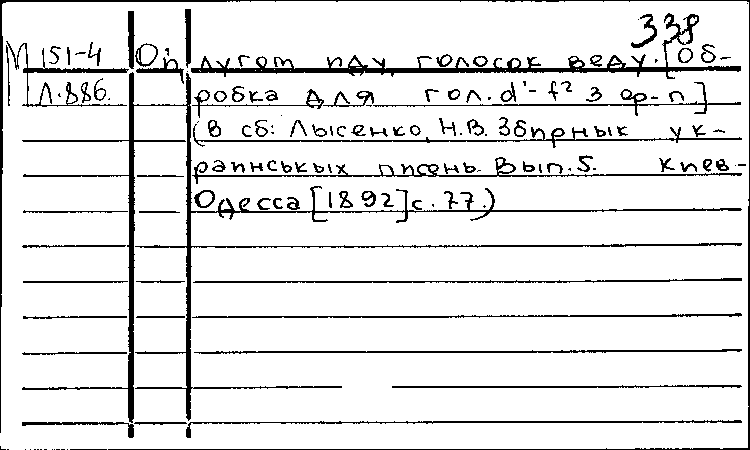 338
М 151-4 Ой, лугом иду, голосок веду. [Об-
Л.886. робка для гол. d¹-f² з ф-п.]
(В сб: Лысенко, Н.В. Збирнык ук-
раинськых писень. Вып. 5. Киев-
Одесса [1892] с. 77.)